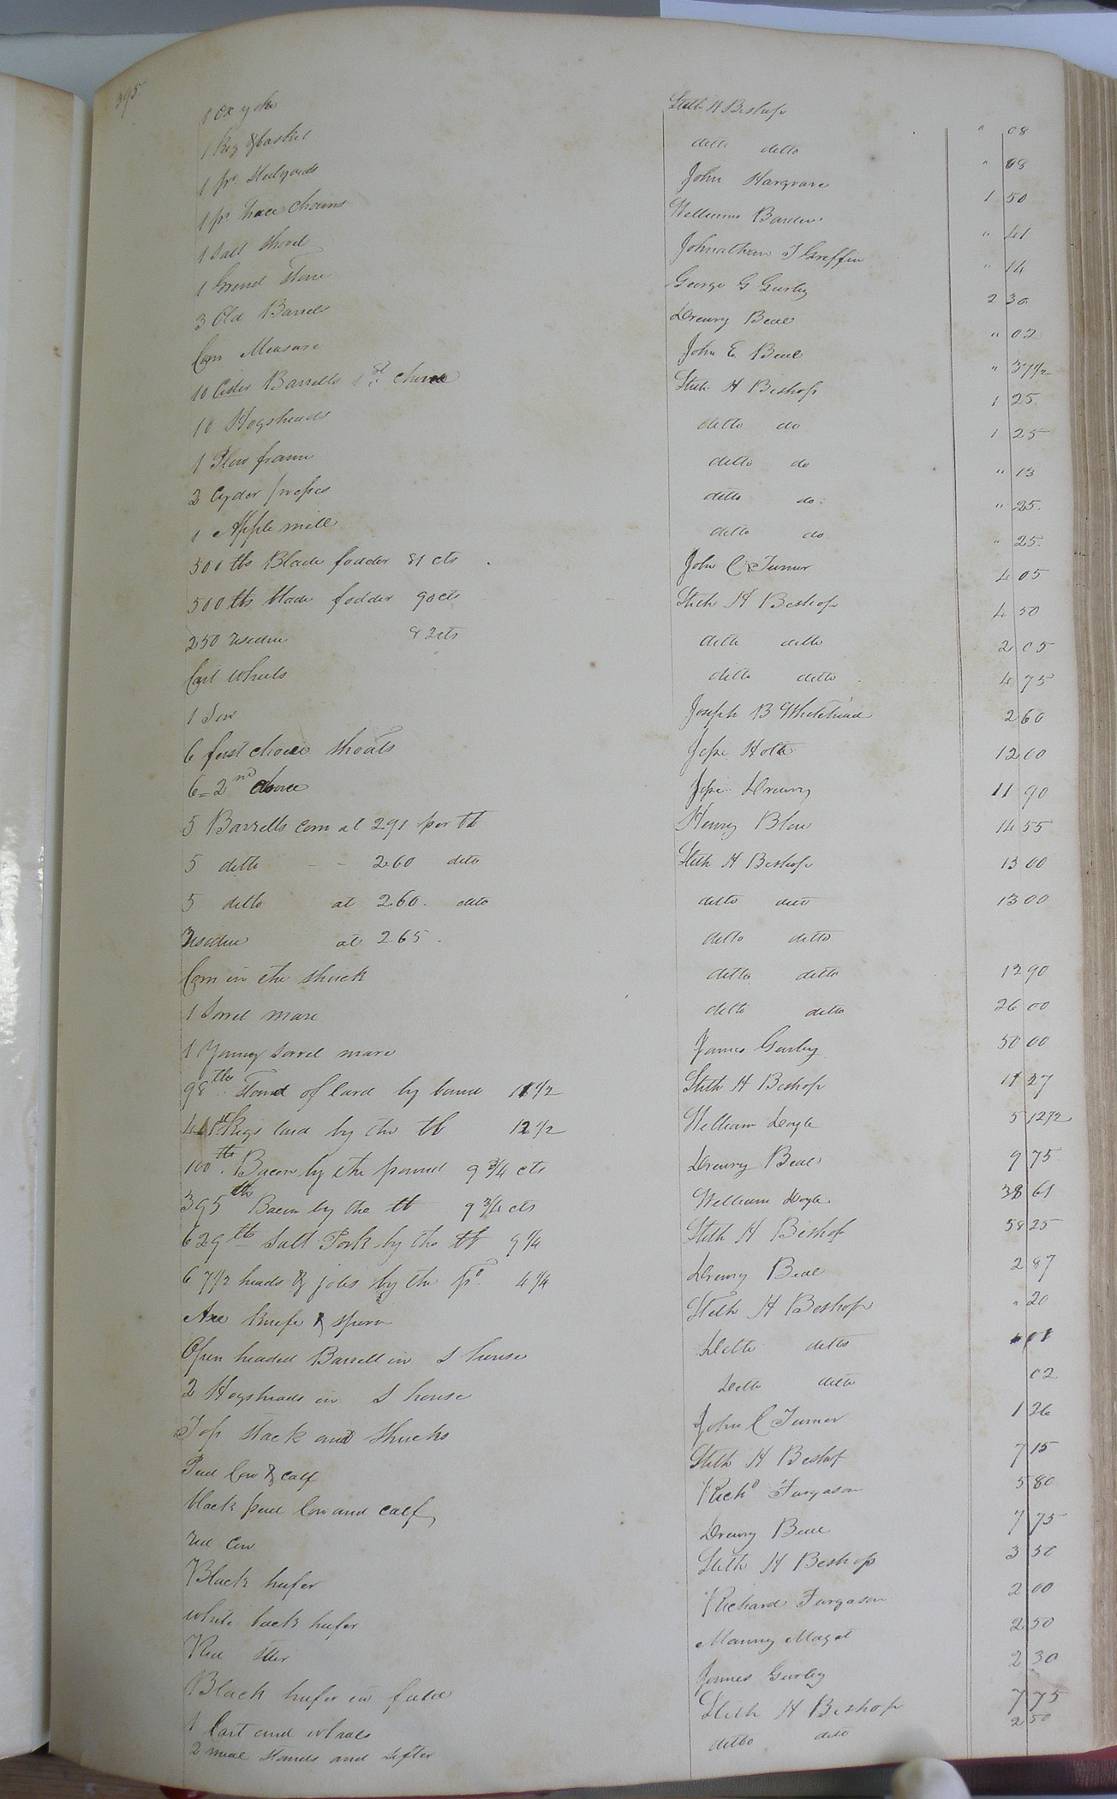 295
1 ox yoke Stith H Bishop " 08
1 Keg & basket ditto ditto " 08
1 pr. Stilyards John Hargrave 1 50
1 pr. trace chains William Barden " 41
1 Salt shovel Johnathan T Griffin " 14
1 Grind Stone George G Gurley 2 30
3 Old Barrels Drewry Beal " 02
Corn Measure John E Beal " 37 1/2
10 Cider Barrells 1st choice Stith H Bishop 1 25
10 Hogsheads ditto do 1 25
1 Plow frame ditto do " 13
2 Cyder presses ditto do. " 25.
1 Apple mill ditto do " 25.
500 lbs Blade fodder 81 cts John C Turner 4 05
500 lbs blade fodder 90 cts Stith H Bishop 4 50
250 residue 82 cts ditto ditto 2 05
Cart wheels ditto ditto 4 75
1 Sow Joseph B Whitehead 2 60
6 first choice shoats Jesse Holt 12 00
6 = 2nd choice Jesse Drewry 11 90
5 Barrells corn at 291 per lb Henry Blow 14 55
5 ditto - - 260 ditto Stith H Bishop 13 00
5 ditto at 260. ditto ditto ditto 13 00
Residue at 265. ditto ditto
Corn in the shuck ditto ditto 12 90
1 Sorrel mare ditto ditto 26 00
1 Young sorrel mare James Gurley 50 00
98 lbs. Stand of lard by pound 11 1/2 Stith H Bishop 11 27
41 lb Kegs lard by the lb 12 1/2 William Doyle 5 12 1/2
100 lb. Bacon by the pound 9 3/4 cts Drewry Beal 9 75
395 lb Bacon by the lb 9 3/4 cts William Doyle. 38 61
629 lb Salt Pork by the lb 9 1/4 Stith H Bishop 58 25
67 1/2 heads & joles by the po. 4 1/4 Drewry Beal 2 87
Axe knife & spoon Stith H Bishop " 20
Open headed Barrell in S house Ditto ditto " 01
2 Hogsheads in S house Ditto ditto 02
Top stack and shucks John C Turner 1 26
Pied Cow & calf Stith H Bishop 7 15
black pied Cow and calf Richd Furgason 5 80
red Cow Drewry Beal 7 75
Black heifer Stith H Bishop 3 50
white back heifer Richard Furgason 2 00
Red Steer Manny Magot 2 50
Black heifer in field James Gurley 2 30
1 Cart and wheels Stith H Bishop 7 75
2 meal stands and sifter ditto ditto 2 50